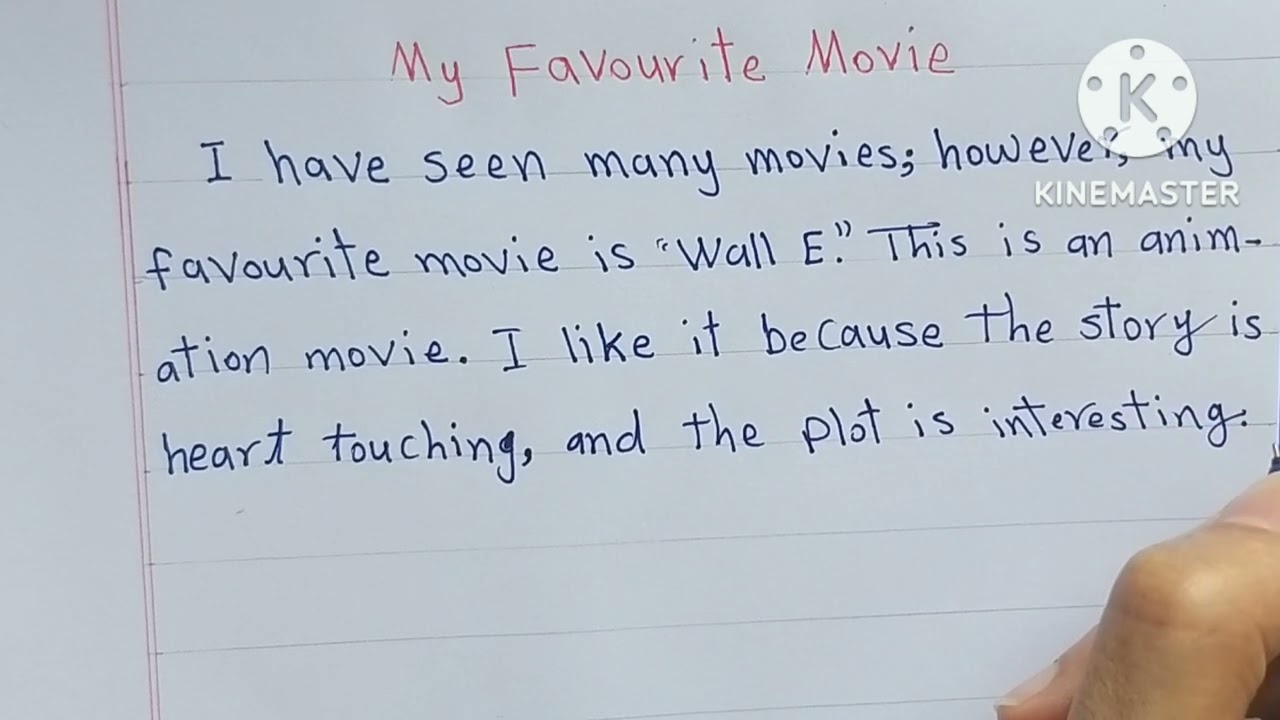 My Favourite Movie
I have seen many movies; however, my
KINEMASTER
favourite movie is "Wall E." This is an anim-
ation movie. I like it because the story is
heart touching, and the plot is interesting.